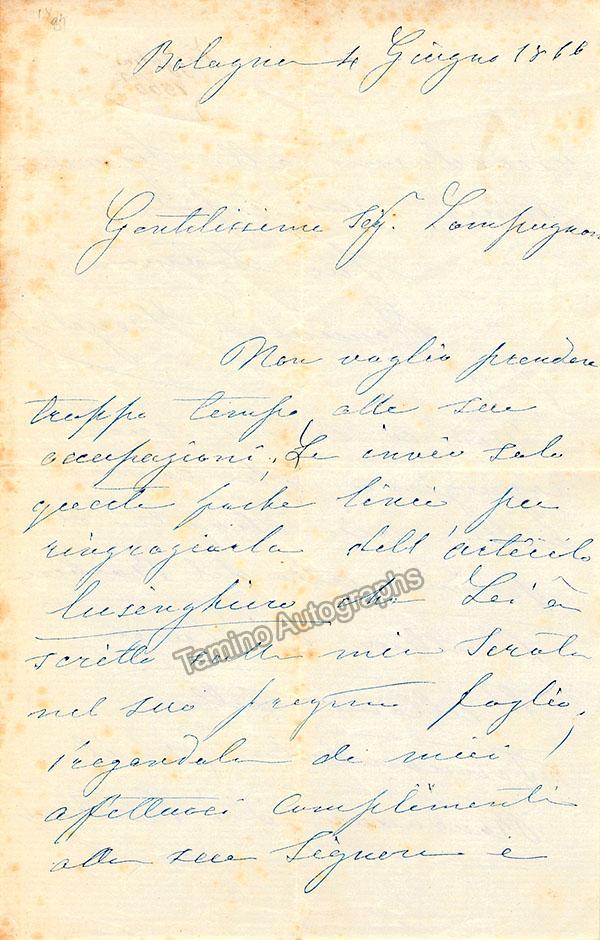 Bologna 4 Giugno 1866
Gentilissimo Sigr. Lampugnani
Non voglio prendere
troppo tempo alle sue
occupazioni. Le invio solo
queste poche linee per
ringraziarla dell'articolo
lusinghiero che Lei à
scritto sulla mia serata
nel suo pregiato foglio,
Pregandola di miei
affettuosi complimenti
alla sua Signora e
Tamino Autographs